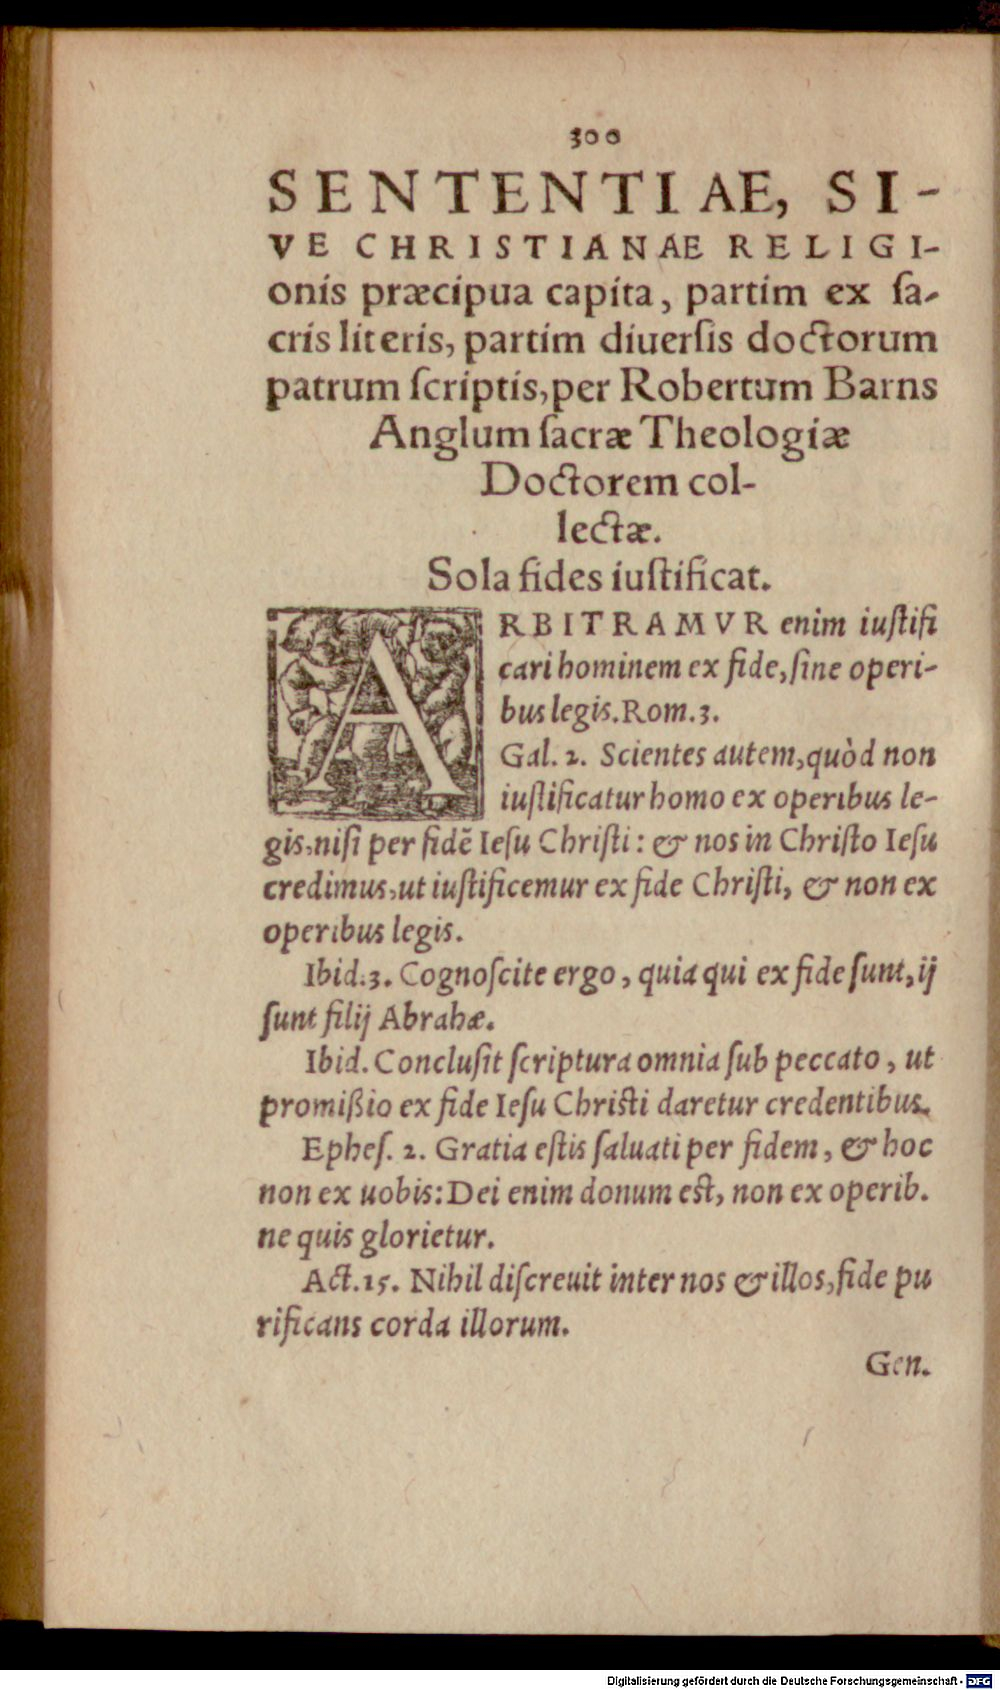 300
SENTENTIAE, SI-
VE CHRISTIANAE RELIGI-
onis præcipua capita, partim ex ſa-
cris literis, partim diuerſis doctorum
patrum ſcriptis, per Robertum Barns
Anglum ſacræ Theologiæ
Doctorem col-
lectæ.
Sola fides iuſtificat.
ARBITRAMVR enim iuſtifi
cari hominem ex fide, ſine operi-
bus legis. Rom. 3.
Gal. 2. Scientes autem, quòd non
iuſtificatur homo ex operibus le-
gis, niſi per fidē Ieſu Chriſti: & nos in Chriſto Ieſu
credimus, ut iuſtificemur ex fide Chriſti, & non ex
operibus legis.
Ibid. 3. Cognoſcite ergo, quia qui ex fide ſunt, ij
ſunt filij Abrahæ.
Ibid. Concluſit ſcriptura omnia ſub peccato, ut
promißio ex fide Ieſu Chriſti daretur credentibus.
Epheſ. 2. Gratia eſtis ſaluati per fidem, & hoc
non ex uobis: Dei enim donum eſt, non ex operib.
ne quis glorietur.
Act. 15. Nihil diſcreuit inter nos & illos, fide pu
rificans corda illorum.
Gen.
Digitalisierung gefördert durch die Deutsche Forschungsgemeinschaft - DFG